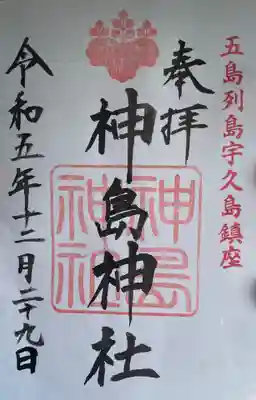 五島列島宇久島鎮座
奉拝
神島神社
神島
神社
令和五年十二月二十九日